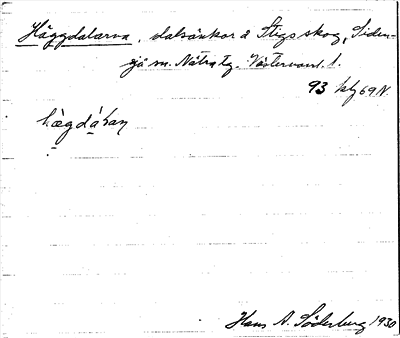 Häggdalarna, dalsänkor å Stigsskog, Siden-
sjö sn. Nätra tg. Västernorrl. l.
93 69 N.
hägdáɽan
Hans A. Söderberg 1930